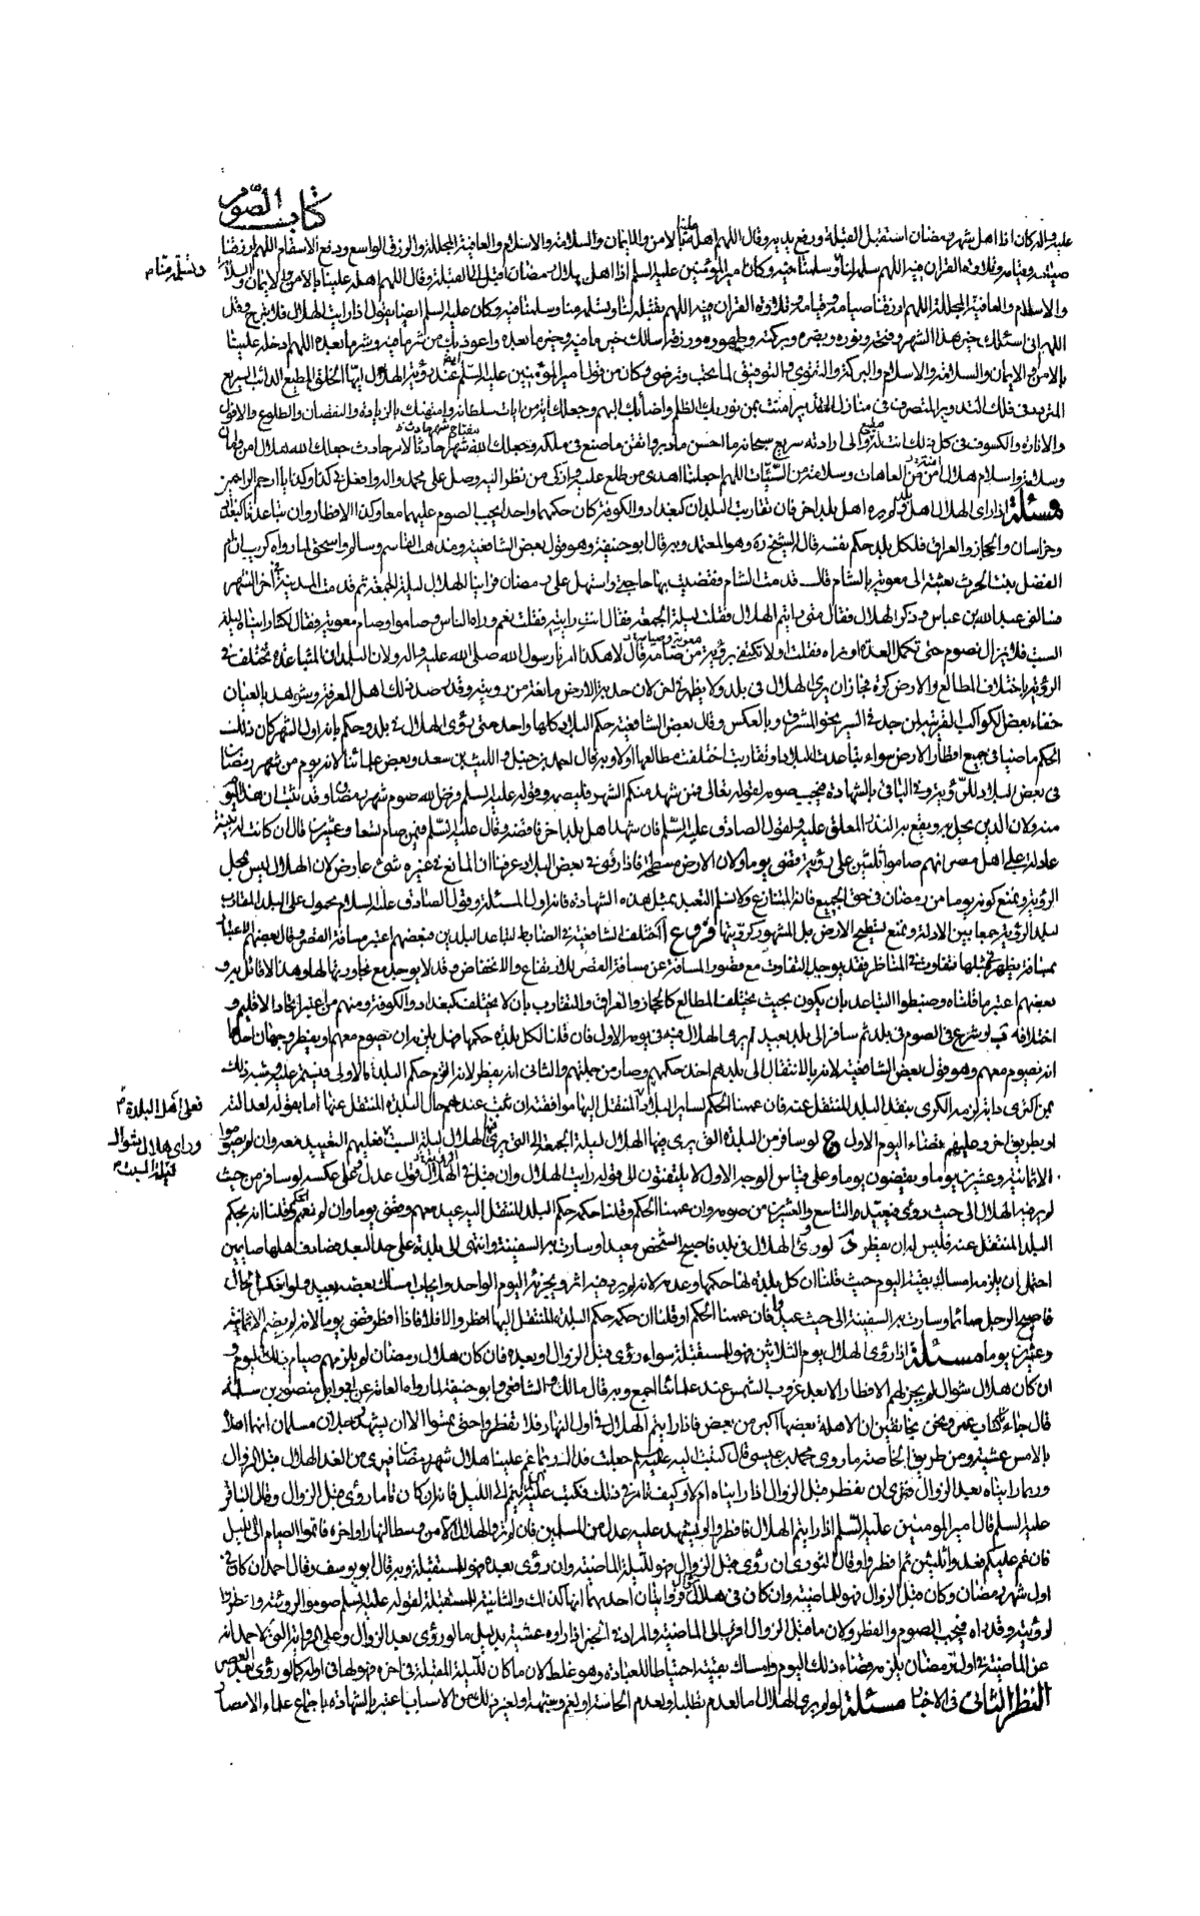 كتاب الصوم
عليه وآله كان اذا اهل شهر رمضان استقبل القبلة ورفع يديه وقال اللهم اهله علينا بالامن والايمان والسلامة والاسلام والعافية المجللة والرزق الواسع ودفع الاسقام اللهم ارزقنا
صيامه وقيامه وتلاوة القران فيه اللهم سلمه لنا وسلمنا فيه وكان امير المؤمنين عليه السلم اذا اهل هلال رمضان اقبل الى القبلة وقال اللهم اهله علينا بالامن والايمان والسلامة
وتسلمه منا م
والاسلام والعافية المجللة اللهم ارزقنا صيامه وقيامه وتلاوة القران فيه اللهم تقبله لنا وتسلمه منا وسلمنا فيه وكان عليه السلم ايضا يقول اذا رايت الهلال فلا تبرح وقل
اللهم انى اسئلك خير هذا الشهر وفتحه ونوره ونصره وبركته وطهوره ورزقه واسالك خير ما فيه وخير ما بعده واعوذ بك من شر ما فيه وشر ما بعده اللهم ادخله علينا
بالامن والايمان والسلامة والاسلام والبركة والتقوى والتوفيق لما تحب وترضى وكان من قول امير المؤمنين عليه السلم ايضا عند رؤية الهلال ايها الخلق المطيع الدائب السريع
المتردد فى فلك التدوير المتصرف فى منازل التقدير امنت بمن نور بك الظلم واضاء بك البهم وجعلك اية من ايات سلطانه وامتهنك بالزيادة والنقصان والطلوع والافول
والانارة والكسوف فى كل ذلك انت له مطيع والى ارادته سريع سبحانه ما احسن ما دبر واتقن ما صنع فى ملكه وجعلك الله مفتاح شهر حادث لامر حادث جعلك الله هلال امن وايمان
وسلامة واسلام هلال امنة من العاهات وسلامة من السيئات اللهم اجعلنا اهدى من طلع عليه وازكى من نظر اليه وصل على محمد وآله وافعل بى كذا وكذا يا ارحم الراحمين
مسئلة اذا راى الهلال اهل بلد ولم يره اهل بلد اخر فان تقاربت البلدان كبغداد والكوفة كان حكمهما واحدا يجب الصوم عليهما معا وكذا الافطار وان تباعدتا كبغداد
وخراسان والحجاز والعراق فلكل بلد حكم نفسه قال الشيخ ره وهو المعتمد وبه قال ابو حنيفة وهو قول بعض الشافعية ومذهب القاسم وسالم واسحق لما رواه كريب ان ام
الفضل بنت الحرث بعثته الى معوية بالشام قال قدمت الشام فقضيت بها حاجتى واستهل على رمضان فراينا الهلال ليلة الجمعة ثم قدمت المدينة فى اخر الشهر
فسالنى عبد الله بن عباس وذكر الهلال فقال متى رايتم الهلال فقلت ليلة الجمعة فقال انت رايته فقلت نعم وراه الناس وصاموا وصام معوية فقال لكنا رايناه ليلة
السبت فلا نزال نصوم حتى نكمل العدة او نراه فقلت اولا تكتفى برؤية معوية وصيامه قال لا هكذا امرنا رسول الله صلى الله عليه وآله ولان البلدان المتباعدة تختلف فى
الرؤية باختلاف المطالع والارض كرة فجاز ان يرى الهلال فى بلد ولا يظهر فى اخر لان حدبة الارض مانعة من رؤيته وقد رصد ذلك اهل المعرفة وشوهد بالعيان
خفاء بعض الكواكب الغربية لمن جد فى السير نحو المشرق وبالعكس وقال بعض الشافعية حكم البلاد كلها واحد متى رؤى الهلال فى بلد وحكم بانه اول الشهر كان ذلك
الحكم ماضيا فى جميع اقطار الارض سواء تباعدت البلاد او تقاربت اختلفت مطالعها اولا وبه قال احمد بن حنبل والليث بن سعد وبعض علمائنا لانه يوم من شهر رمضان
فى بعض البلاد للرؤية وفى الباقى بالشهادة فيجب صومه لقوله تعالى فمن شهد منكم الشهر فليصمه وقوله عليه السلم فرض الله صوم شهر رمضان وقد ثبت ان هذا اليوم
منه ولان الدين يحل به ويقع به النذر المعلق عليه ولقول الصادق عليه السلم فان شهد اهل بلد اخر فاقضه وقال عليه السلم فيمن صام تسعا وعشرين قال ان كانت له بينة
عادلة على اهل مصر انهم صاموا ثلثين على رؤية قضى يوما ولان الارض مسطحة فاذا رؤى فى بعض البلاد عرفنا ان المانع فى غيره شئ عارض لان الهلال ليس بمحل
الرؤية ونمنع كونه يوما من رمضان فى حق الجميع فانه المتنازع ولا نسلم التعبد بمثل هذه الشهادة فانه اول المسئلة وقول الصادق عليه السلام محمول على البلد المقارب
لبلد الرؤية جمعا بين الادلة ونمنع تسطيح الارض بل المشهور كرويتها فروع ا اختلف الشافعية فى الضابط لتباعد البلدين فبعضهم اعتبر مسافة القصر وقال بعضهم الاعتبار
بمسافة يظهر فى مثلها تفاوت فى المناظر فقد يوجد التفاوت مع قصور المسافة عن مسافة القصر للارتفاع والانخفاض وقد لا يوجد مع تجاوزها لها وهذا لا قائل به و
بعضهم اعتبر ما قلناه وضبطوا التباعد بان يكون بحيث يختلف المطالع كالحجاز والعراق والتقارب بان لا يختلف كبغداد والكوفة ومنهم من اعتبر اتحاد الاقليم و
اختلافه ب لو شرع فى الصوم فى بلد ثم سافر الى بلد بعيد لم ير الهلال فيه فى يومه الاول فان قلنا لكل بلدة حكمها فهل يلزمه ان يصوم معهم او يفطر وجهان احدهما
انه يصوم معهم وهو قول بعض الشافعية لانه بالانتقال الى بلدهم اخذ حكمهم وصار من جملتهم والثانى انه يفطر لانه التزم حكم البلدة الاولى فيستمر عليه وشبه ذلك
بمن اكترى دابة لزمه الكرى بنقد البلد المنتقل عنه فان عممنا الحكم لسائر البلاد فعلى اهل البلدة المنتقل اليها موافقته ان ثبت عندهم حال البلدة المنتقل عنها اما بقوله لعدالته
فعلى اهل البلدة م
او بطريق اخر وعليهم قضاء اليوم الاول ج لو سافر من البلدة التى يرى فيها الهلال ليلة الجمعة الى التى يرى فيها الهلال ليلة السبت فعليهم التعييد معه وان لم يصوموا
وراى هلال شوال ليلة السبت م
الا ثمانية وعشرين يوما ويقضون يوما وعلى قياس الوجه الاول لا يلتفتون الى قوله رايت الهلال وان قبل فى الهلال قول عدل وعلى عكسه لو سافر من حيث
لم ير فيه الهلال الى حيث رؤى فيعيد والتاسع والعشرين من صومه وان عممنا الحكم وقلنا حكمه حكم البلد المنتقل اليه عيد معهم وقضى يوما وان لم نعمم الحكم وقلنا انه بحكم
البلد المنتقل عنه فليس له ان يفطر د لو رؤى الهلال فى بلد فاصبح الشخص معيدا وسارت به السفينة وانتهى الى بلدة على حد البعد فصادف اهلها صائمين
احتمل ان يلزمه امساك بقية اليوم حيث قلنا ان كل بلدة لها حكمها وعدمه لانه لم يرد فيه اثر ويجزئة اليوم الواحد وايجاب امساك بعضه بعيد ولو انعكس الحال
فاصبح الرجل صائما وسارت به السفينة الى حيث عيدوا فان عممنا الحكم او قلنا ان حكمه حكم البلدة المنتقل اليها افطر والا فلا فاذا افطر قضى يوما لانه لم يصم الا ثمانية
وعشرين يوما مسئلة اذا رؤى الهلال يوم الثلاثين فهو للمستقبلة سواء رؤى قبل الزوال او بعده فان كان هلال رمضان لم يلزمهم صيام ذلك اليوم و
ان كان هلال شوال لم يجز لهم الافطار الا بعد غروب الشمس عند علمائنا اجمع وبه قال مالك والشافعى وابو حنيفة لما رواه العامة عن ابى وايل منصور بن سلمه
قال جاءنا كتاب عمر ونحن بخانقين ان الاهلة بعضها اكبر من بعض فاذا رايتم الهلال فى اول النهار فلا تفطروا حتى تمسوا الا ان يشهد رجلان مسلمان انهما اهلاه
بالامس عشية ومن طريق الخاصة ما روى محمد بن عيسى قال كتبت اليه عليه السلم جعلت فداك ربما غم علينا هلال شهر رمضان فيرى من الغد الهلال قبل الزوال
وربما رايناه بعد الزوال فترى ان نفطر قبل الزوال اذا رايناه ام لا وكيف تامر فى ذلك فكتب عليه السلم تتم الى الليل فانه ان كان تاما رؤى قبل الزوال وقال الباقر
عليه السلم قال امير المؤمنين عليه السلم اذا رايتم الهلال فافطروا او يشهد عليه عدل من المسلمين فان لم تروا الهلال الا من وسط النهار او اخره فاتموا الصيام الى الليل
فان غم عليكم فعدوا ثلثين ثم افطروا وقال الثورى ان رؤى قبل الزوال فهو لليلة الماضية وان رؤى بعده فهو للمستقبلة وبه قال ابو يوسف وقال احمد ان كان فى
اول شهر رمضان وكان قبل الزوال فهو للماضية وان كان فى هلال شوال فروايتان احديهما انها كذلك والثانية للمستقبلة لقوله عليه السلم صوموا لرؤيته وافطروا
لرؤيته وقد راه فيجب الصوم والفطر ولان ما قبل الزوال اقرب الى الماضية والمراد فى الخبر اذا راوه عشية بدليل ما لو رؤى بعد الزوال وعلى الرواية التى لاحمد انه
عن الماضية فى اول رمضان يلزم قضاء ذلك اليوم وامساك بقيته احتياطا للعبادة وهو غلط لان ما كان لليلة المقبلة فى اخره فهو لها فى اوله كما لو رؤى بعد العصر
النظر الثانى فى الاخبار مسئلة لو لم ير الهلال ما لعدم تطلبه او لعدم الحاسة او لغيم وشبهه او لغير ذلك من الاسباب اعتبر بالشهادة باجماع علماء الامصار